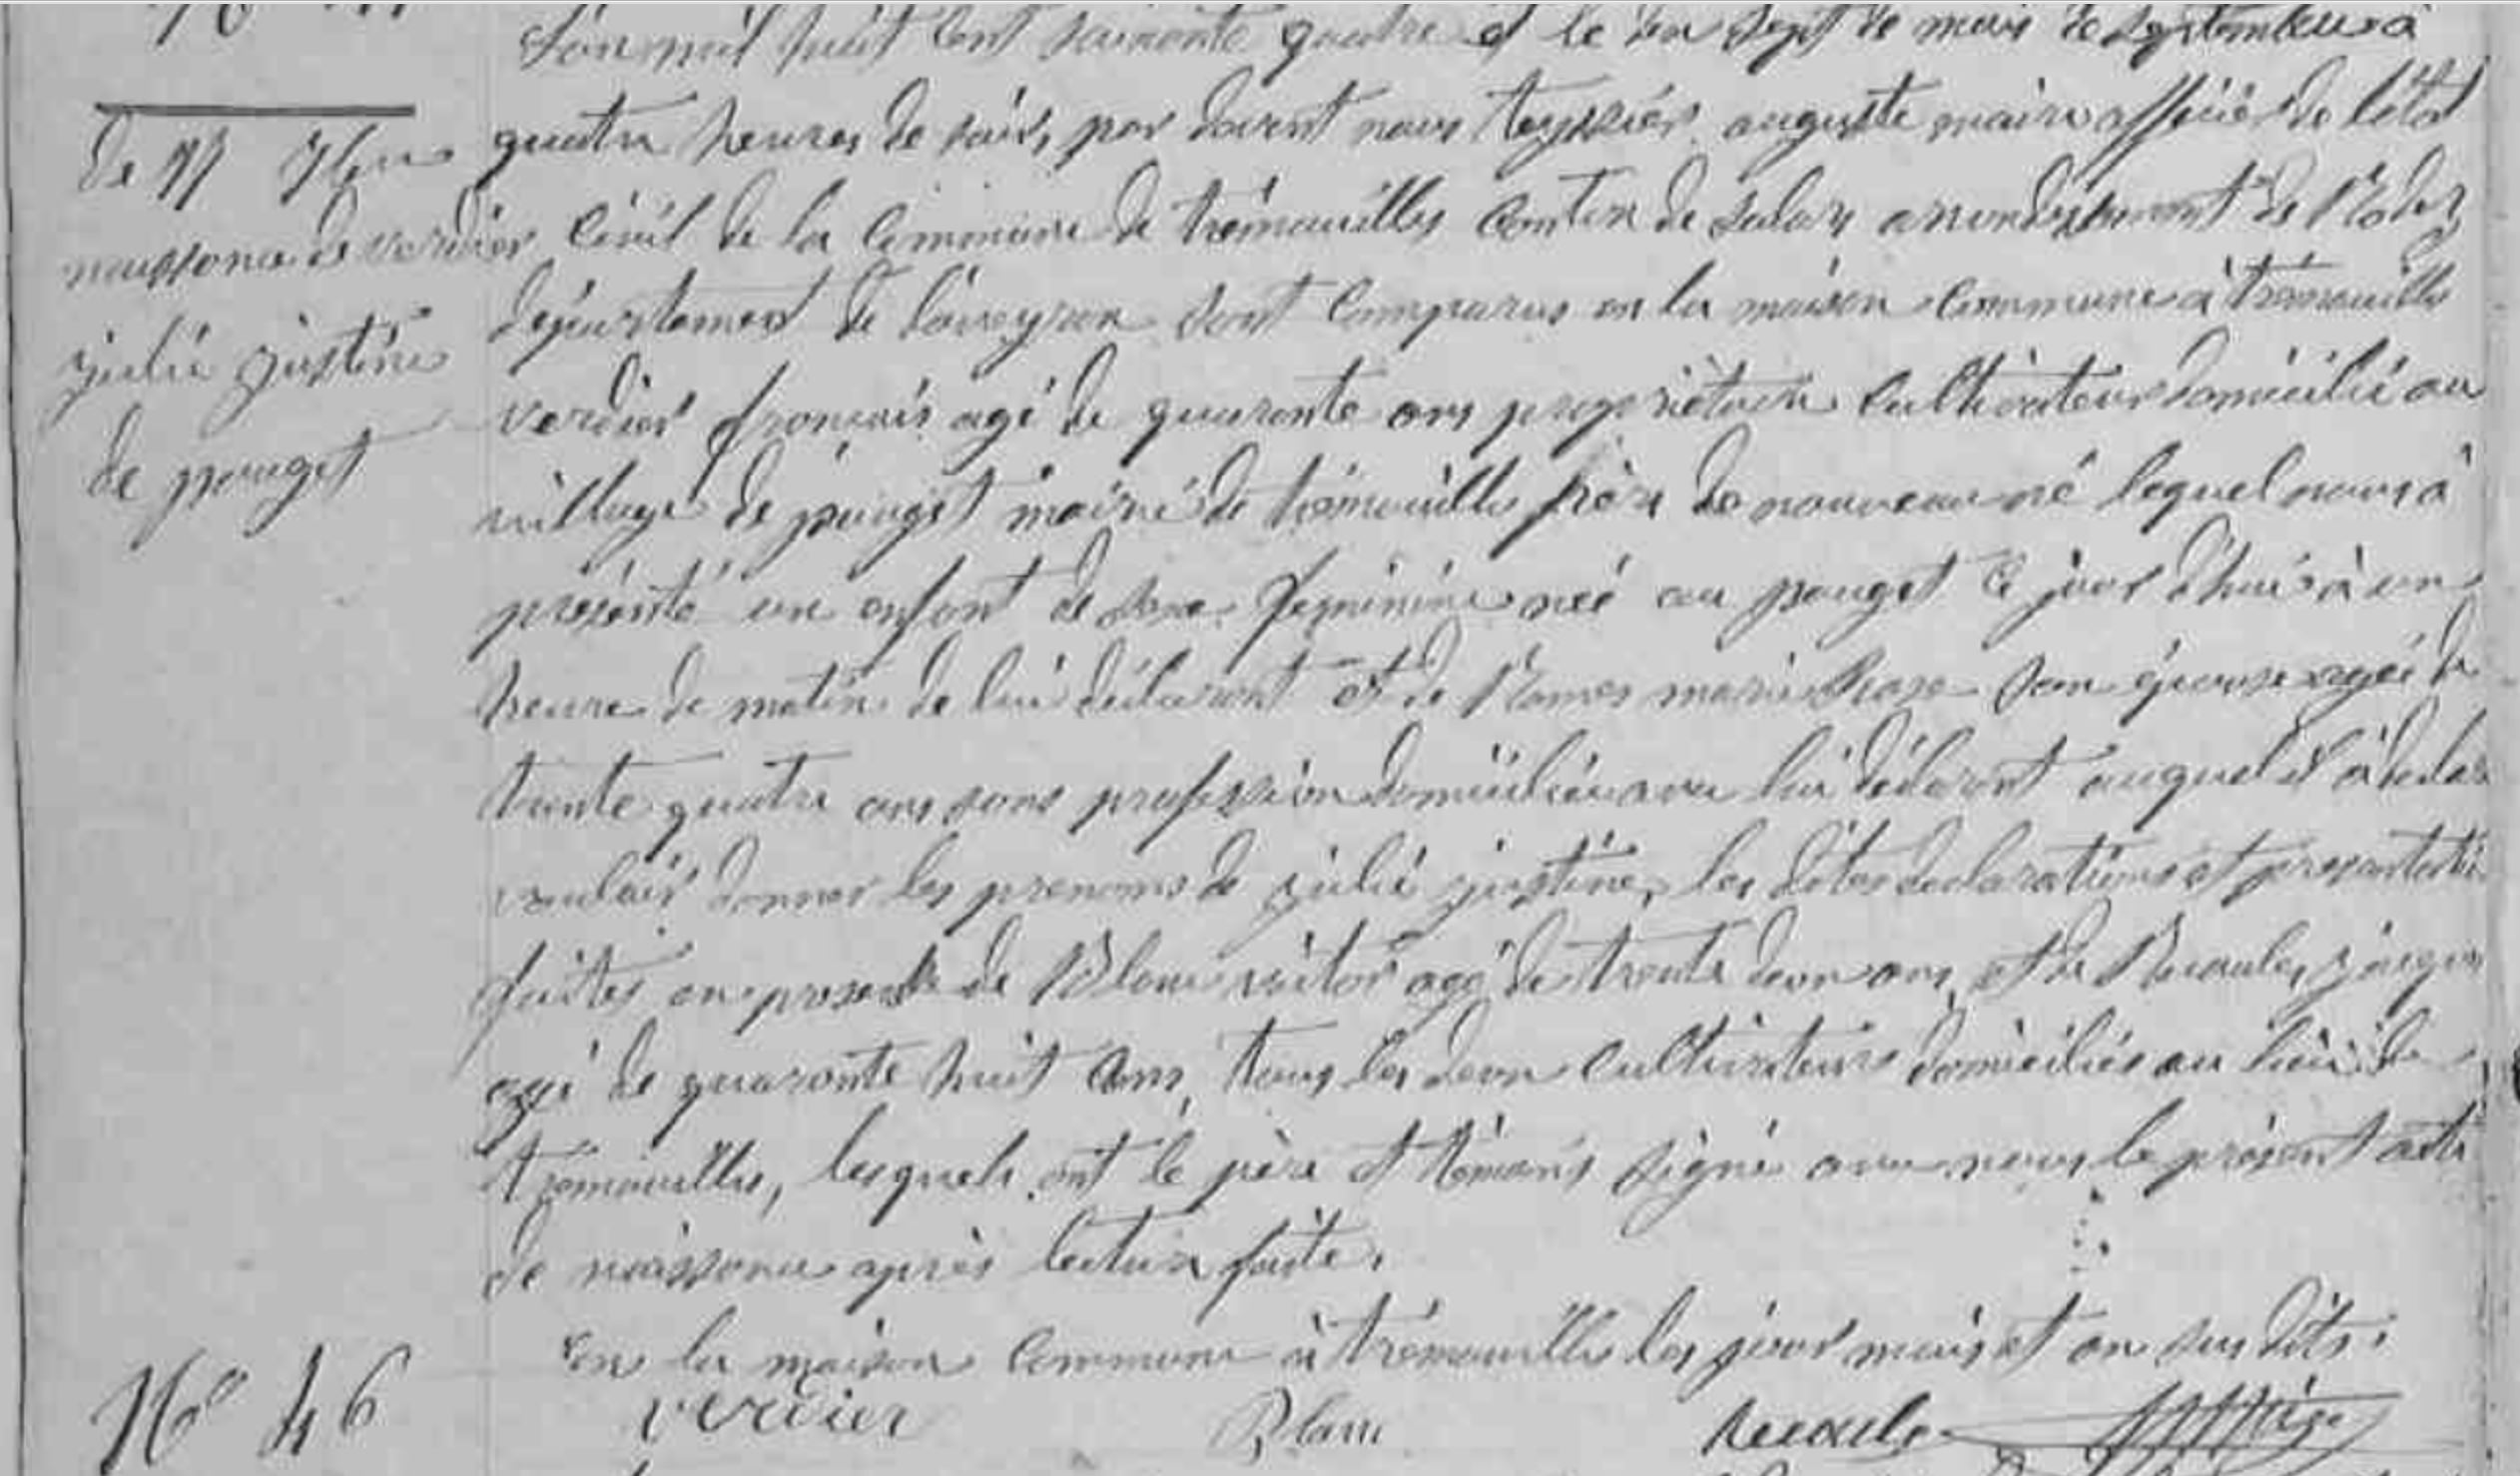 L'an mil huit cent soixante quatre et le dix sept de mois de septembre à
de 17 7bre
quatre heures de soir, par devent nous teyssier auguste maire officier de l'état
naissance de verdier
civil de la commune de trémouilles canton de Salars arrondissement de Rodez
julie justine
département de l'aveyron sont comparus en la maison commune à trémouilles
verdier françois agé de quarante ans propriétaire cultivateur domicilié au
de pouget
village de pouget mairie de trémouilles père de nouveau né lequel nous à
présenté un enfant de sexe feminine née au pouget ce jour d'hui à un
heure de matin de lui déclarant et de marie Rose son épouse agée de
trente quatre ans sans profession domiciliée avec lui déclarant auquel il à déclaré
vouloir donner les prenoms de julie justine, les dites declarations et presentation
faites en presence de Blanc victor agé de trente deux ans, et de Recoules jacques
agé de quarante huit ans, tous les deux cultivateurs domiciliés au lieu de
trémouilles, lesquels ont le père et témoins signé avec nous le présent acte
de naissance après lecture faite.
En la maison commune à trémouilles les jour mois et an sus dits.
verdier Blanc Recoules
No 46